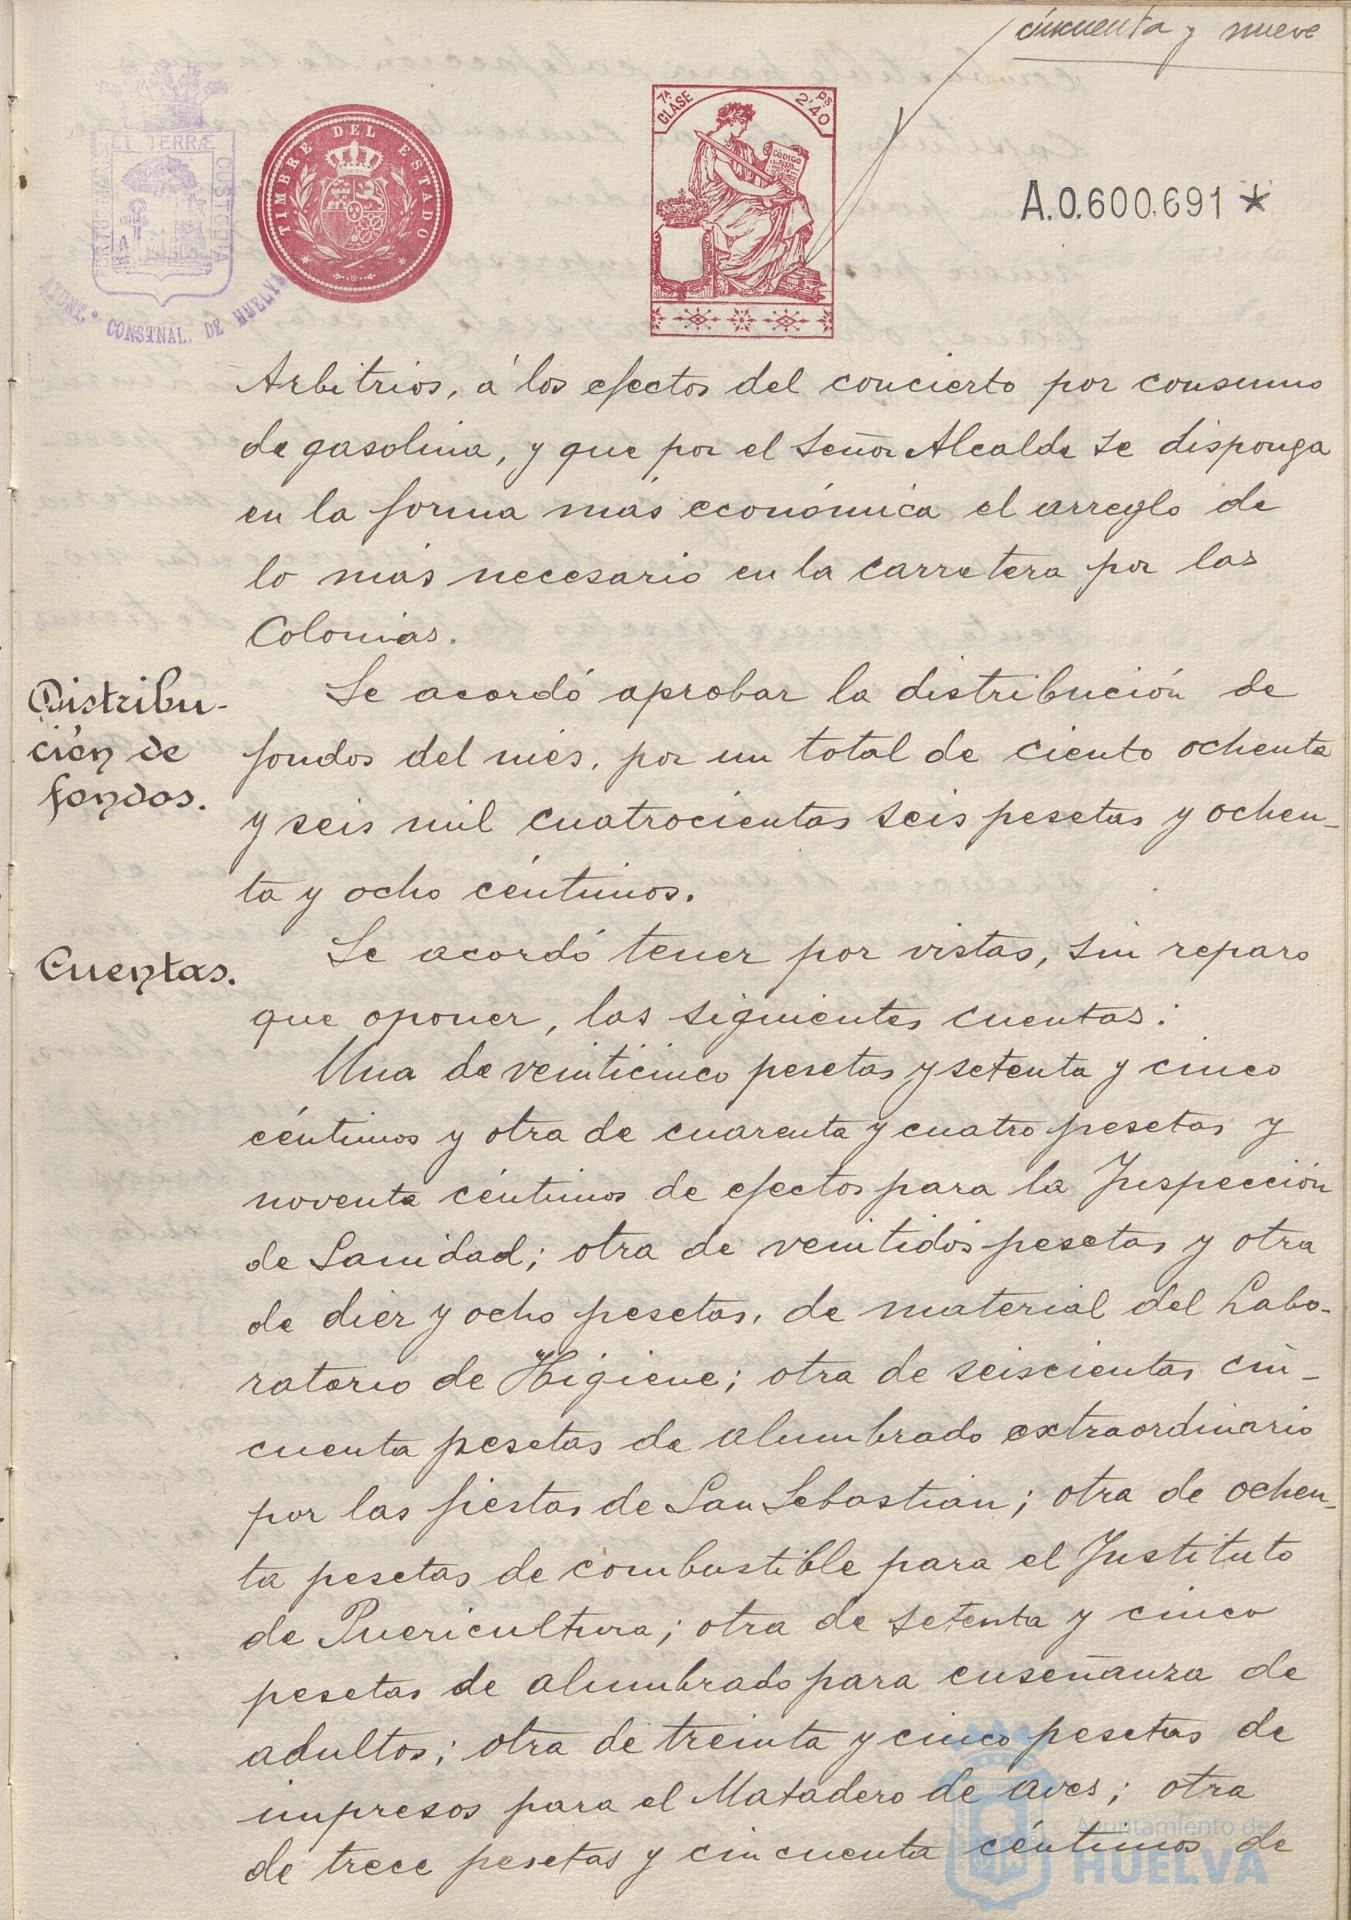 cincuenta y nueve
7ª CLASE
2'40 PS
CÓDIGO
ET TERRÆ
CUSTODIA
AYUNT. CONSTNAL. DE HUELVA
TIMBRE DEL ESTADO
A.0.600.691 *
Arbitrios, á los efectos del concierto por consumo
de gasolina, y que por el Señor Alcalde se disponga
en la forma más económica el arreglo de
lo más necesario en la carretera por las
Colonias.
Distribu-
ción de
fondos.
Se acordó aprobar la distribución de
fondos del més, por un total de ciento ochenta
y seis mil cuatrocientas seis pesetas y ochen-
ta y ocho céntimos.
Cuentas.
Se acordó tener por vistas, sin reparo
que oponer, las siguientes cuentas:
Una de veinticinco pesetas y setenta y cinco
céntimos y otra de cuarenta y cuatro pesetas y
noventa céntimos de efectos para la Inspección
de Sanidad; otra de veintidós pesetas y otra
de diez y ocho pesetas, de material del Labo-
ratorio de Higiene; otra de seiscientas cin-
cuenta pesetas de alumbrado extraordinario
por las fiestas de San Sebastián; otra de ochen-
ta pesetas de combustible para el Instituto
de Puericultura; otra de setenta y cinco
pesetas de alumbrado para enseñanza de
adultos; otra de treinta y cinco pesetas de
impresos para el Matadero de aves; otra
de trece pesetas y cincuenta céntimos de
Ayuntamiento de
HUELVA